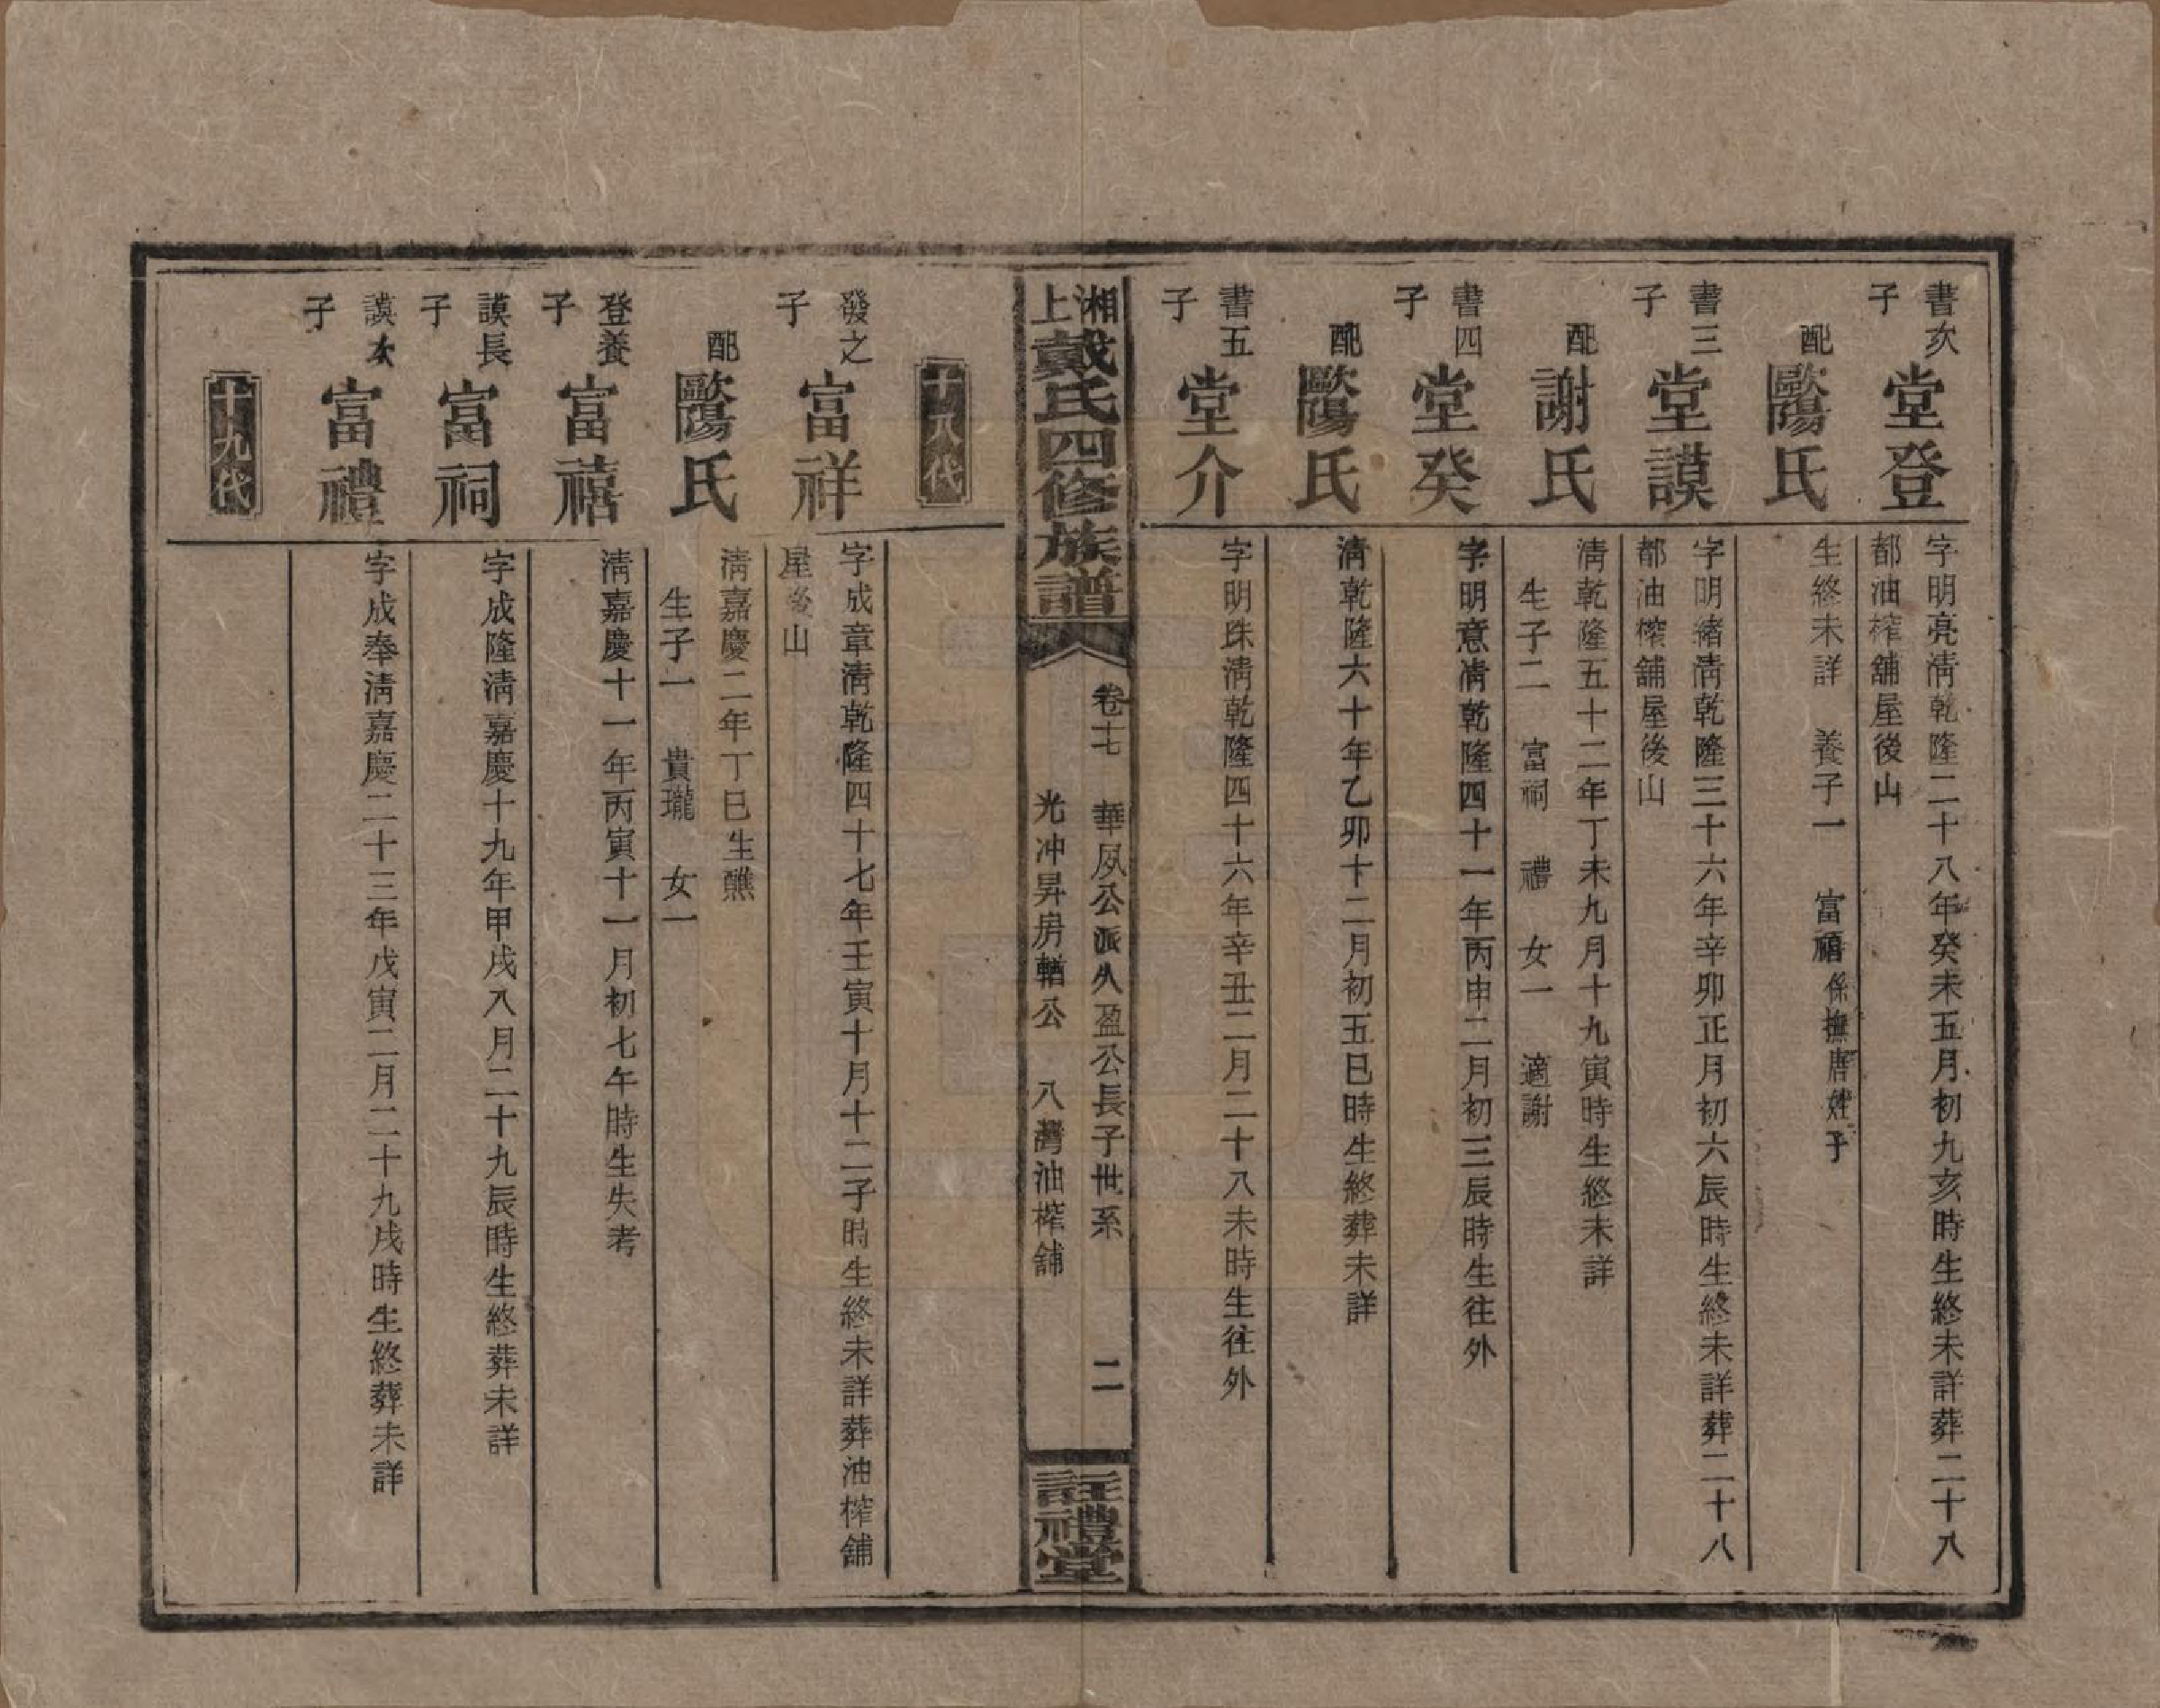 書次子
堂登
字明亮清乾隆二十八年癸未五月初九亥時生終未詳葬二十八
都油榨舖屋後山
配
歐陽氏
生終未詳 養子一 富禧係撫唐姓子
書三子
堂謨
字明緒清乾隆三十六年辛卯正月初六辰時生終未詳葬二十八
都油榨舖屋後山
配
謝氏
清乾隆五十二年丁未九月十九寅時生終未詳
生子二 富祠 禮 女一 適謝
書四子
堂癸
字明意清乾隆四十一年丙申二月初三辰時生往外
配
歐陽氏
清乾隆六十年乙卯十二月初五巳時生終葬未詳
書五子
堂介
字明珠清乾隆四十六年辛丑二月二十八未時生往外
湘上戴氏四修族譜
卷十七 華夙公派久盈公長子世系 二
光冲昇房輶公 八灣油榨舖
註禮堂
十八代
發之子
富祥
字成章清乾隆四十七年壬寅十月十二子時生終未詳葬油榨舖
屋後山
配
歐陽氏
清嘉慶二年丁巳生醮
生子一 貴瓏 女一
登養子
富禧
清嘉慶十一年丙寅十一月初七午時生失考
謨長子
富祠
字成隆清嘉慶十九年甲戌八月二十九辰時生終葬未詳
謨次子
富禮
字成奉清嘉慶二十三年戊寅二月二十九戌時生終葬未詳
十九代